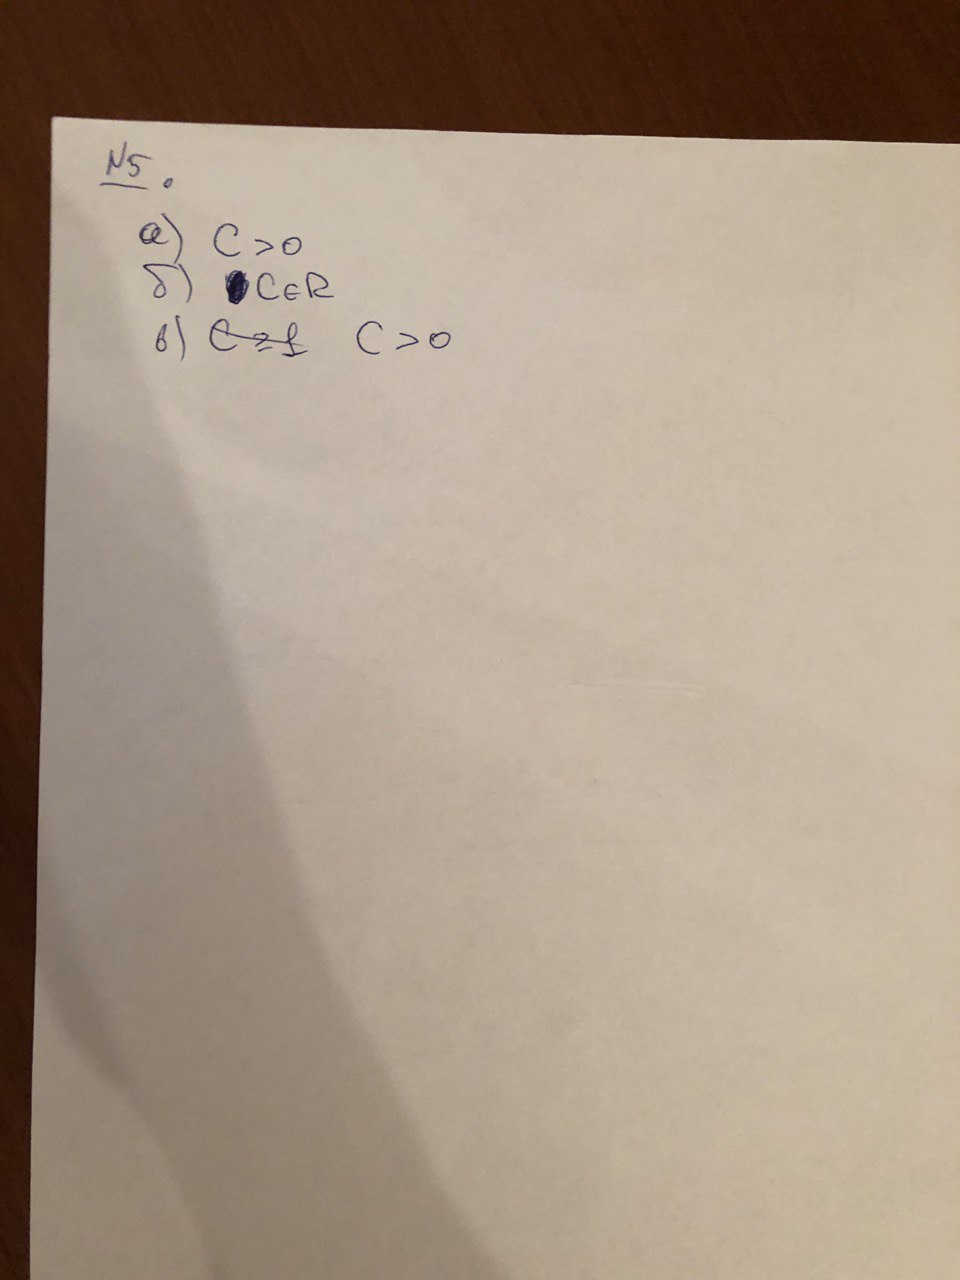 N5.
а) C>0
б) C∈R
в) C≥1 C>0